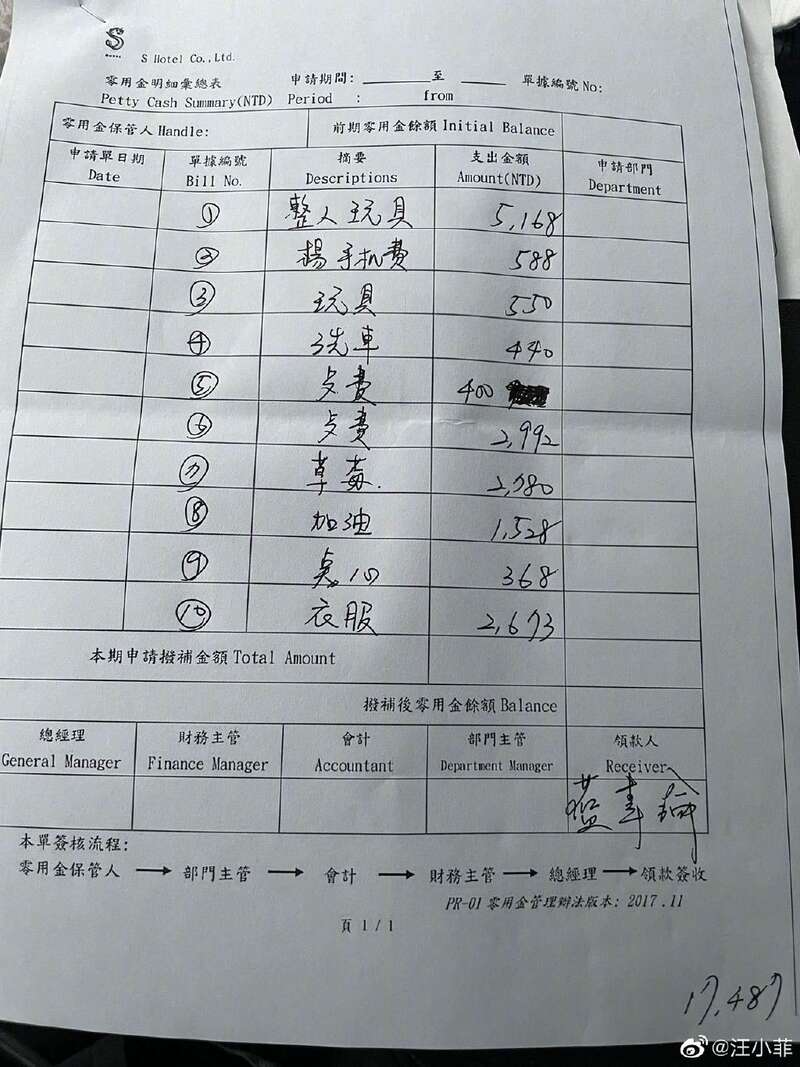 S
S Hotel Co.,Ltd.
零用金明細彙總表 申請期間: 至 單據編號 No:
Petty Cash Summary(NTD) Period : from
零用金保管人 Handle: 前期零用金餘額 Initial Balance
申請單日期 單據編號 摘要 支出金額 申請部門
Date Bill No. Descriptions Amount(NTD) Department
① 整人玩具 5,168
② 楊手机費 588
③ 玩具 550
④ 洗車 440
⑤ 費 400
⑥ 費 2,992
⑦ 草莓. 2,780
⑧ 加油 1,528
⑨ 奌心 368
⑩ 衣服 2,673
本期申請撥補金額 Total Amount
撥補後零用金餘額 Balance
總經理 財務主管 會計 部門主管 領款人
General Manager Finance Manager Accountant Department Manager Receiver
本單簽核流程:
零用金保管人 → 部門主管 → 會計 → 財務主管 → 總經理 → 領款簽收
PR-01 零用金管理辦法版本: 2017.11
頁 1 / 1
17,487
@汪小菲